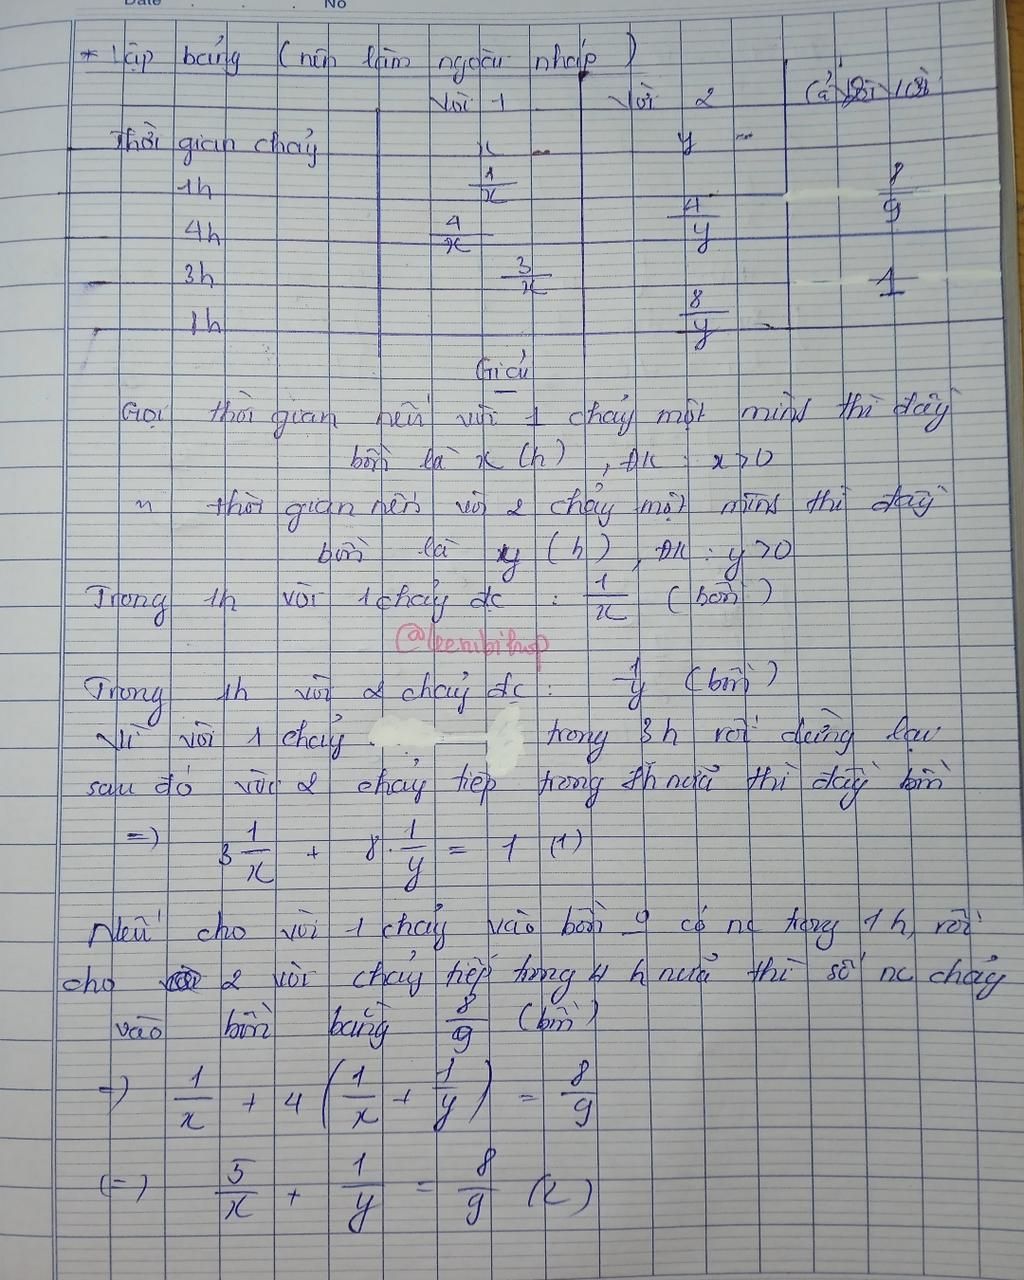 Date No
* Lập bảng (nên làm ngoài nháp)
Vòi 1 Vòi 2 Cả vòi
Thời gian chảy x y
1h 1/x 8/9
4h 4/x 4/y
3h 3/x 1
1h 8/y
Giải
Gọi thời gian nếu vòi 1 chảy một mình thì đầy
bồn là x (h), ĐK: x > 0
" thời gian nếu vòi 2 chảy một mình thì đầy
bồn là y (h), ĐK: y > 0
Trong 1h vòi 1 chảy đc : 1/x (bồn)
Trong 1h vòi 2 chảy đc : 1/y (bồn)
Vì vòi 1 chảy trong 3h rồi dừng lại
sau đó vòi 2 chảy tiếp trong nữa thì đầy bồn
=) 3 1/x + 8 . 1/y = 1 (1)
Nếu cho vòi 1 chảy vào bồn có nc trong 1h, rồi
cho 2 vòi chảy tiếp trong 4 h nữa thì số nc chảy
vào bồn bằng 8/9 (bồn)
=) 1/x + 4 (1/x + 1/y) = 8/9
(=) 5/x + 1/y = 8/9 (2)